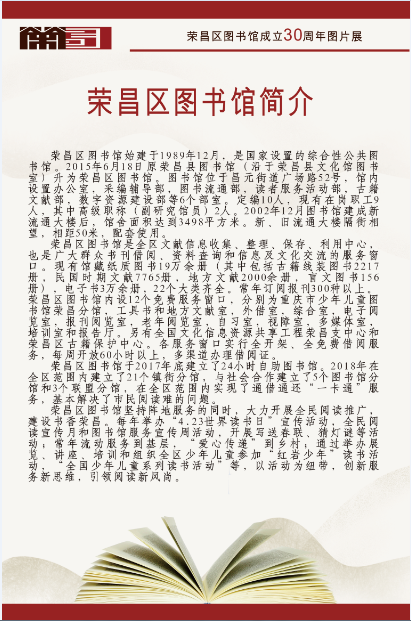 荣昌区图书馆成立30周年图片展
荣昌区图书馆简介
荣昌区图书馆始建于1989年12月，是国家设置的综合性公共图
书馆。2015年6月18日原荣昌县图书馆（沿于荣昌县文化馆图书
室）升为荣昌区图书馆。图书馆位于昌元街道广场路52号，馆内
设置办公室、采编辅导部、图书流通部、读者服务活动部、古籍
文献部、数字资源建设部等6个部室。定编10人，现有在岗职工9
人，其中高级职称（副研究馆员）2人。2002年12月图书馆建成新
流通大楼后，馆舍面积达到3498平方米。新、旧流通大楼隔街相
望，相距50米，配套使用。
荣昌区图书馆是全区文献信息收集、整理、保存、利用中心，
也是广大群众书刊借阅、资料查询和信息及文化交流的服务窗
口。现有馆藏纸质图书19万余册（其中包括古籍线装图书2217
册，民国时期文献7765册，地方文献2000余册，盲文图书156
册），电子书3万余册，22个大类齐全，常年订阅报刊300种以上。
荣昌区图书馆内设12个免费服务窗口，分别为重庆市少年儿童图
书馆荣昌分馆，工具书和地方文献室，外借室，综合室，电子阅
览室，报刊阅览室，老年阅览室，自习室，视障室，多媒体室，
培训室和报告厅。另有全国文化信息资源共享工程荣昌支中心和
荣昌区古籍保护中心。各服务窗口实行全开架、全免费借阅服
务，每周开放60小时以上，多渠道办理借阅证。
荣昌区图书馆于2017年底建立了24小时自助图书馆。2018年在
全区范围内建立了21个镇街分馆，与社会合作建立了5个图书馆分
馆和3个联盟分馆，在全区范围内实现了通借通还“一卡通”服
务，基本解决了市民阅读难的问题。
荣昌区图书馆坚持阵地服务的同时，大力开展全民阅读推广，
建设书香荣昌。每年举办“4.23世界读书日”宣传活动、全民阅
读宣传月和图书馆服务宣传周活动，开展写送春联、猜灯谜等活
动；常年流动服务到基层、“爱心传递”到乡村；通过举办展
览、讲座、培训和组织全区少年儿童参加“红岩少年”读书活
动，“全国少年儿童系列读书活动”等，以活动为纽带，创新服
务新思维，引领阅读新风尚。